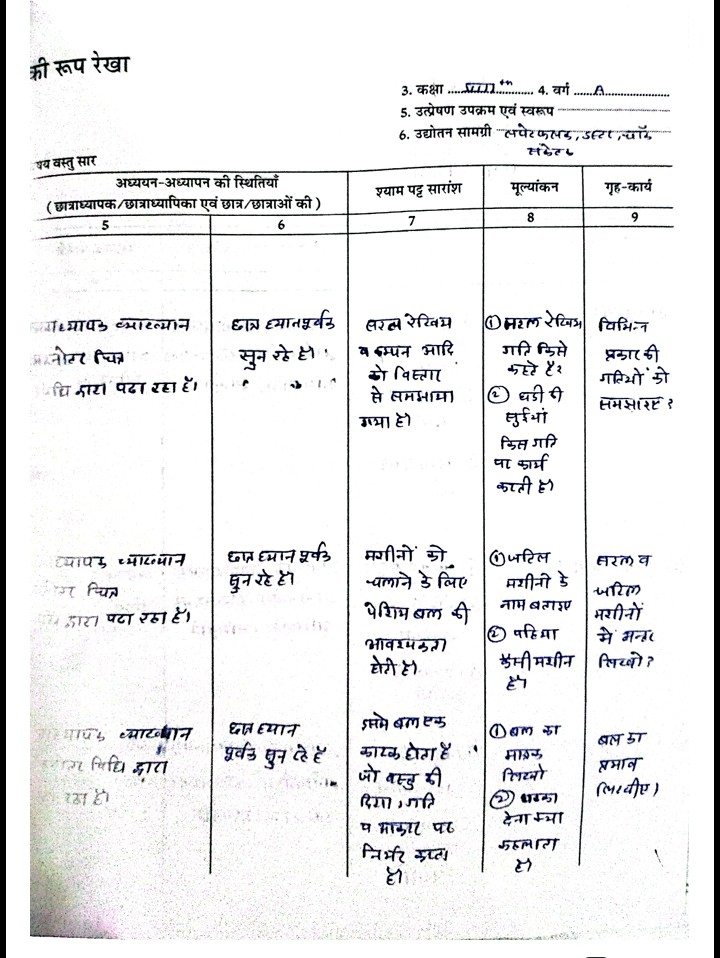 की रूप रेखा
3. कक्षा VIII th 4. वर्ग A
5. उत्प्रेषण उपक्रम एवं स्वरूप
6. उद्योतन सामग्री लपेटफलक, डस्टर, चॉक
संकेतक
वस्तु सार
अध्ययन-अध्यापन की स्थितियाँ
(छात्राध्यापक/छात्राध्यापिका एवं छात्र/छात्राओं की)
श्याम पट्ट सारांश
मूल्यांकन
गृह-कार्य
5 6 7 8 9
व्याख्यान
चित्र
द्वारा पढा रहा है।
छात्र ध्यानपूर्वक
सुन रहे है।
सरल रेखिय
व कम्पन आदि
को विस्तार
से समझाया
गया है।
① सरल रेखिय
गति किसे
कहते है?
② घडी की
सुईयां
किस गति
पर कार्य
करती है।
विभिन्न
प्रकार की
गतियों को
समझाइए?
ध्यापक व्याख्यान
चित्र
द्वारा पढा रहा है।
छात्र ध्यान पूर्वक
सुन रहे है।
मशीनों को
चलाने के लिए
पेशिय बल की
आवश्यकता
होती है।
① जटिल
मशीनो के
नाम बताइए
② पहिया
कैसी मशीन
है।
सरल व
जटिल
मशीनों
में अन्तर
लिखो?
व्याख्यान
विधि द्वारा
रहा है।
छात्र ध्यान
पूर्वक सुन रहे है
इसमे बल एक
कारक होता है
जो वस्तु की
दिशा, गति
व आकार पर
निर्भर करता
है।
① बल का
मात्रक
लिखो
② धक्का
देना क्या
कहलाता
है।
बल का
प्रभाव
लिखीए।